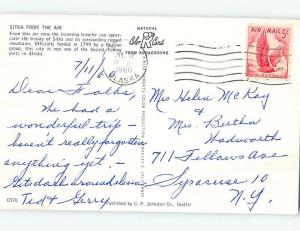 SITKA FROM THE AIR
From this air view the incoming traveler can appreciate the beauty of Sitka and its surrounding rugged mountains. Officially founded in 1799 by a Russian group, this city is now one of the busiest fishing ports in Alaska.
NATURAL
Color Card
FROM KODACHROME
1960
ALASKA
AIR MAIL 5¢
7/11/60
Dear Folks,
We had a
wonderful trip -
haven't really forgotten
anything yet. -
Gets dark around eleven
Ted & Gerry
Mrs Helen McKay
&
Mrs. Bertha
Wadsworth
711 Fellows Ave
Syracuse 10
N.Y.
C576
Published by C. P. Johnston Co., Seattle